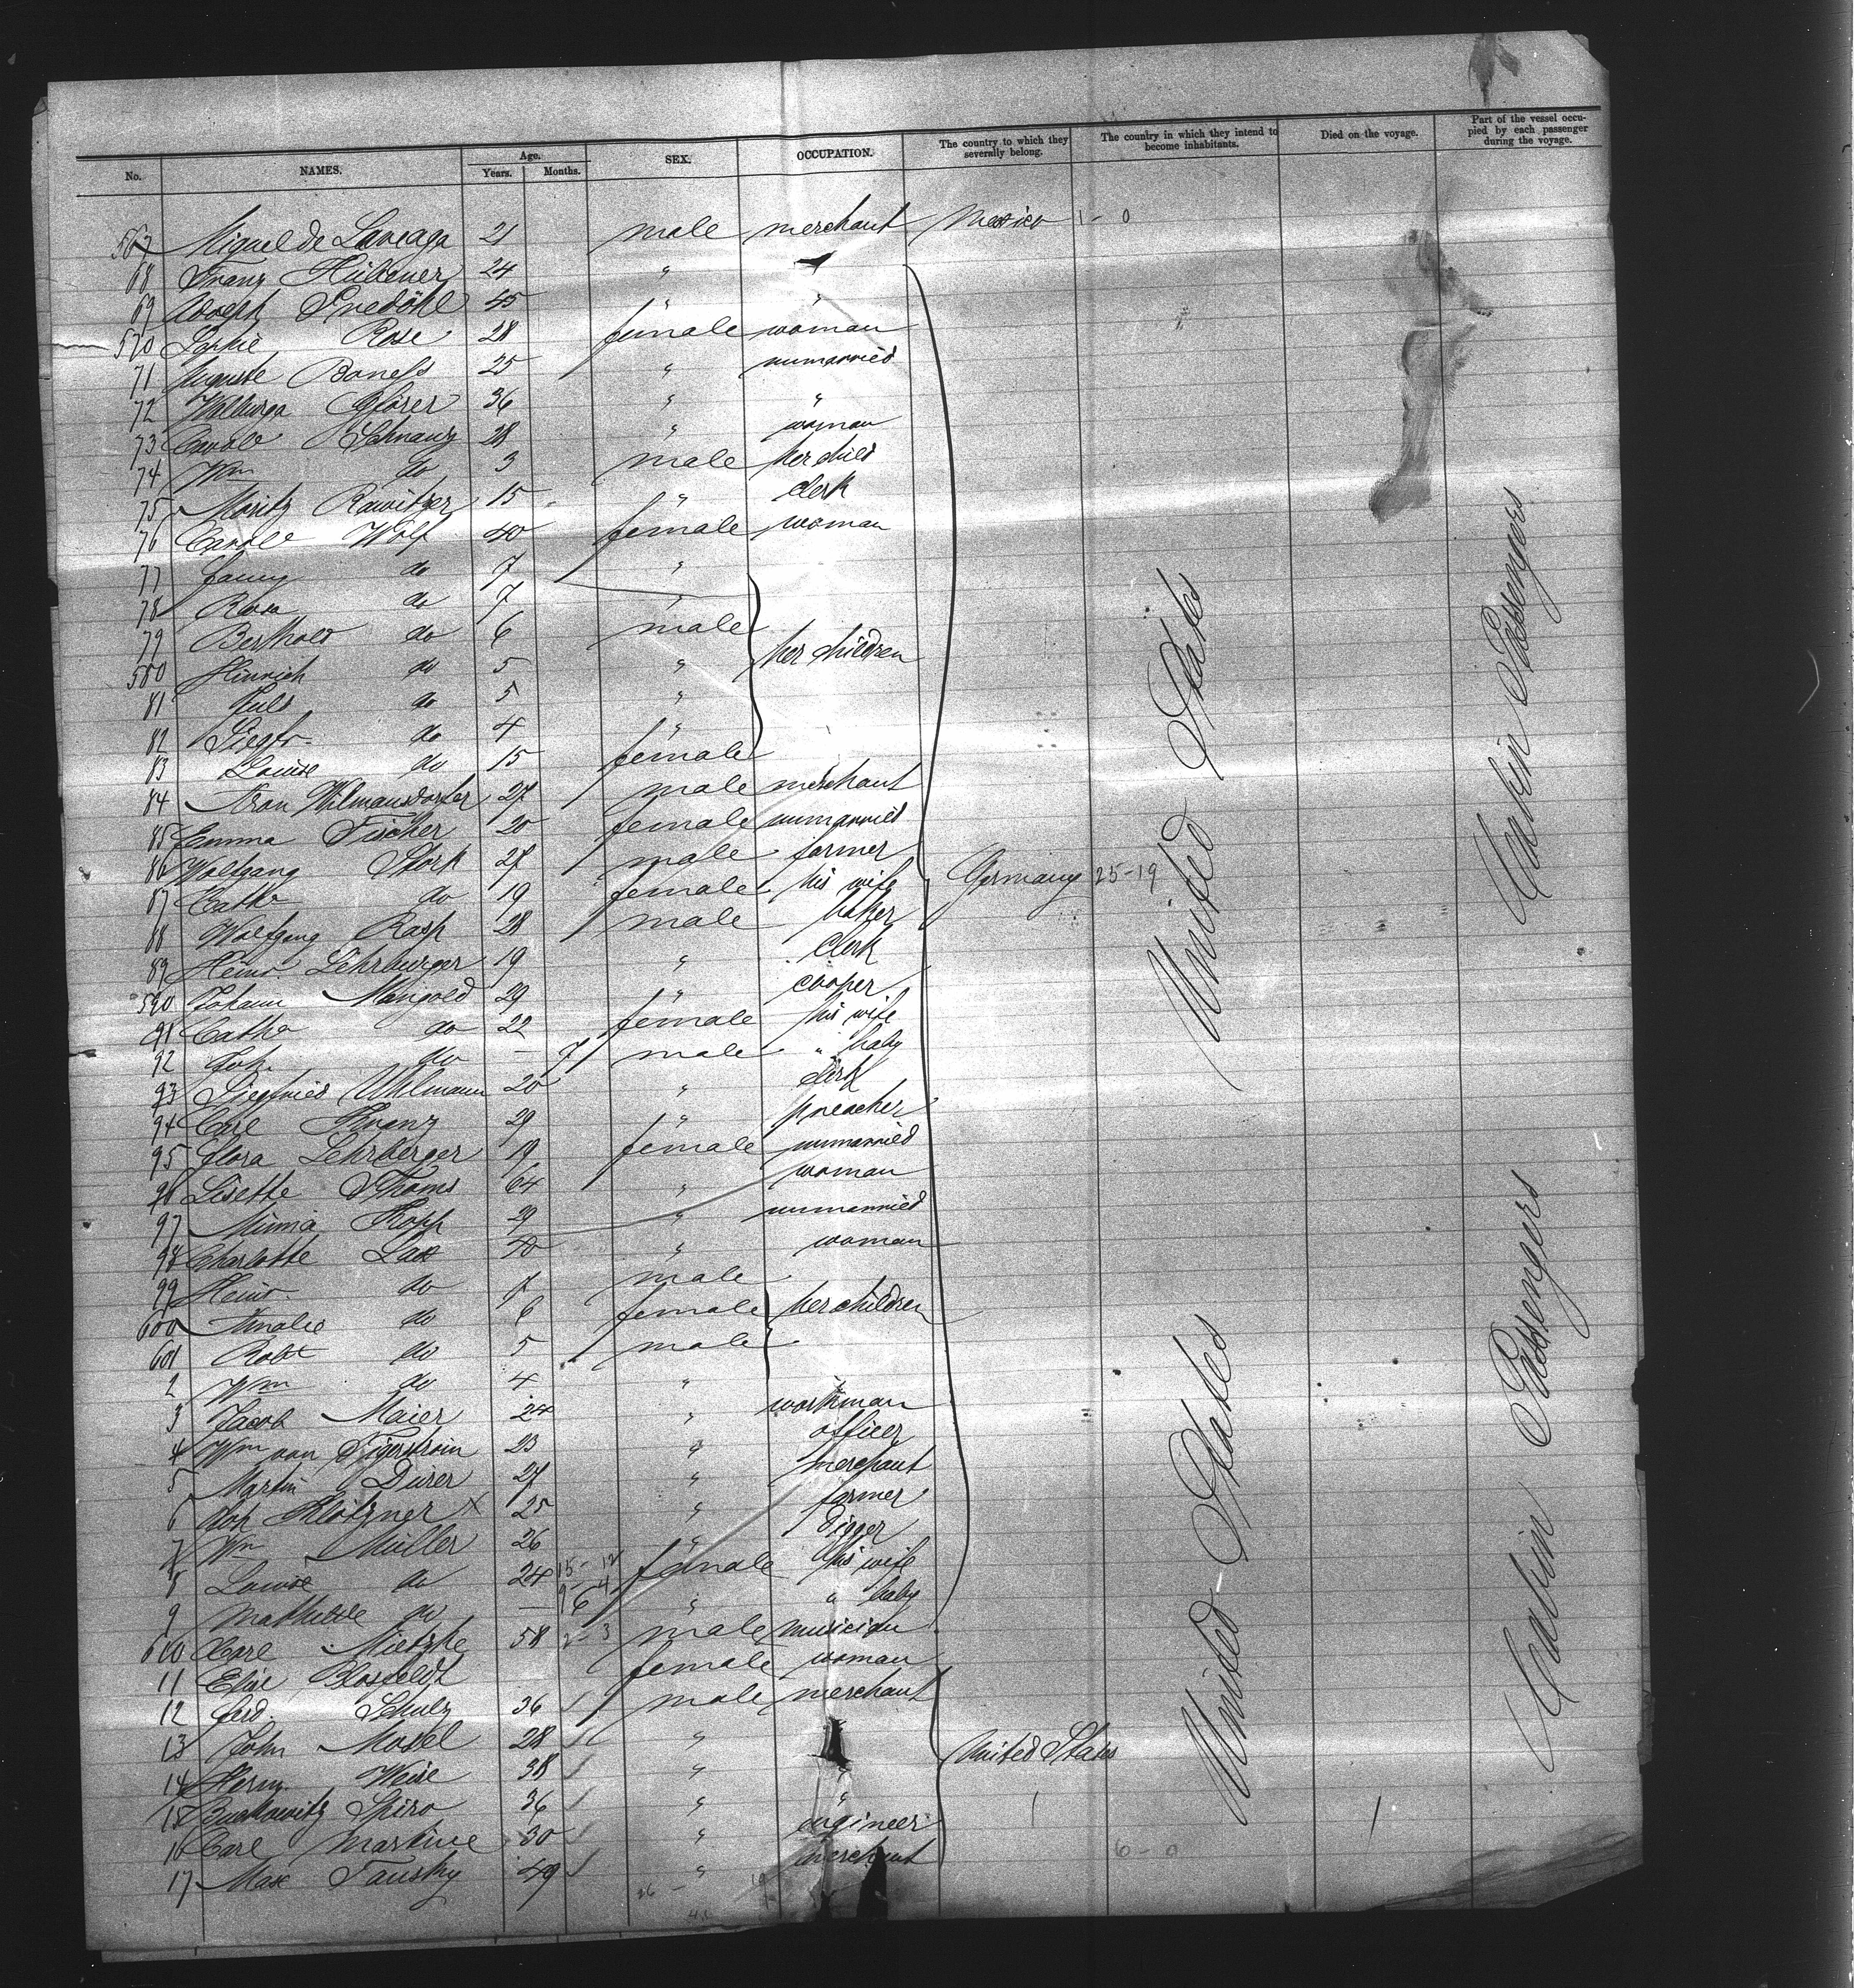 No. NAMES. Age. Years. Months. SEX. OCCUPATION. The country to which they severally belong. The country in which they intend to become inhabitants. Died on the voyage. Part of the vessel occupied by each passenger during the voyage.
567 Miguel de Laveaga 21 male merchant Mexico 1 - 0
68 Franz Hübener 24 " "
69 45 " "
570 Sophie Rose 28 female woman
71 Auguste Boness 25 " unmarried
72 Walburga Gförer 36 " "
73 Schnauz 28 " woman
74 Wm do 3 male her child
75 Moritz Rawitzer 15 " clerk
76 Wolf 40 female woman
77 Fanny do 7 "
78 Rosa do 7 "
79 Berthold do 6 male her children
580 Hinrich do 5 "
81 do 5 "
82 Siegfr. do 4 "
83 Louise do 15 female
84 Aron Wilmansdorfer 27 male merchant
85 Emma Fischer 20 female unmarried
86 Wolfgang Stork 27 male farmer Germany 25-19
87 Cathe do 19 female his wife
88 Wolfgang Rasp 28 male baker
89 Heinr. Lehrburger 19 " clerk
590 Johann Marigold 29 " cooper
91 Cathe do 22 female his wife
92 Joh. do — 7 male " baby
93 Siegfried Uhlmann 20 " clerk
94 Carl 29 " preacher
95 Flora Lehrberger 19 female unmarried
96 Lisette Thoms 64 " woman
97 Minna Kopp 29 " unmarried
98 Charlotte Lax 40 " woman
99 Heinr. do 7 male
600 Amalie do 6 female her children
601 Robt do 5 male
2 Wm do 4 "
3 Jacob Maier 24 " workman
4 Wm van 23 " officer
5 Martin Dürer 27 " merchant
6 Joh Klötzner X 25 " farmer
7 Wm Müller 26 " digger
8 Louise do 24 15-12 female his wife
9 Mathilde do — 9 6 4 " " baby
610 Carl Nietzke 58 2-3 male musician
11 Elise Blosfeldt female woman
12 Ferd. Schulz 36 male merchant
13 John Mosel 28 "
14 Herm. Weise 38 " " United States
15 Spiro 36 " "
16 Carl Martine 30 " engineer
17 Max Tausky 49 " merchant
6 - 0
United States
United States
Cabin Passengers
Cabin Passengers